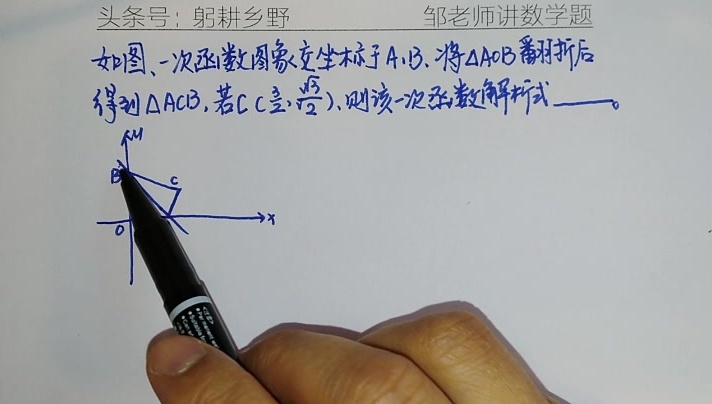 头条号：躬耕乡野 邹老师讲数学题
如图、一次函数图象交坐标于A、B、将△AOB翻折后
得到△ACB,若C(3/2,√3/2)、则该一次函数解析式____。
y
B
C
O
x